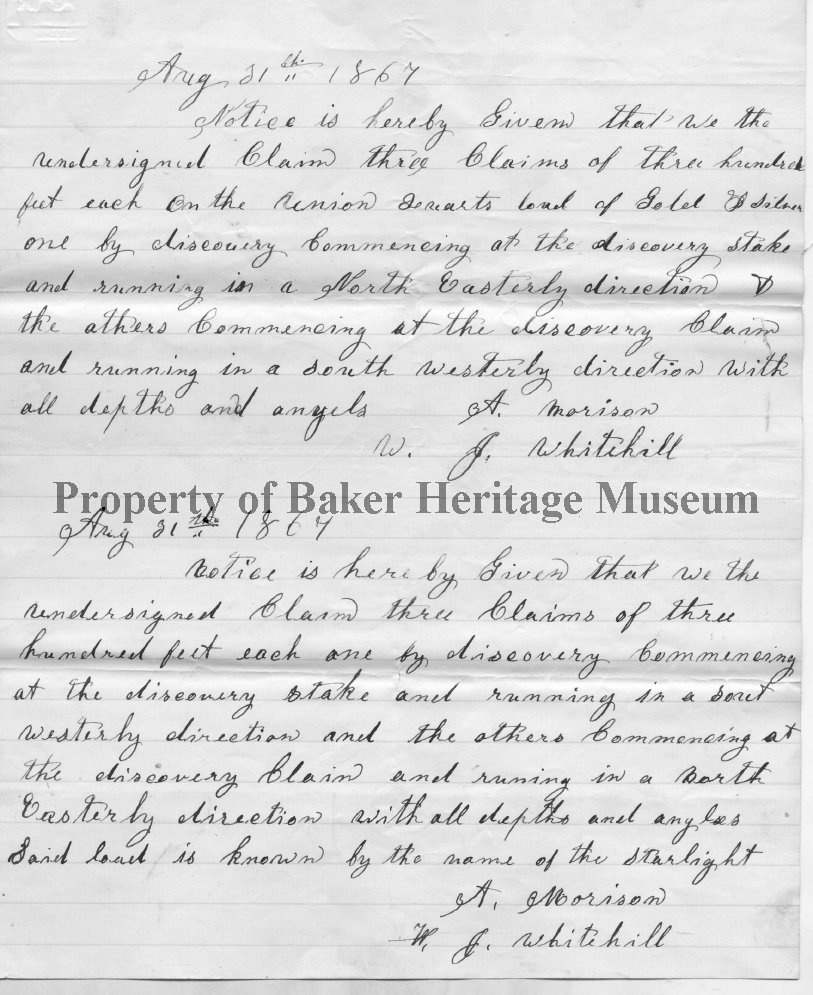 Aug 31th 1867
Notice is hereby Givem that we the
undersigned Claim three Claims of three hundred
feet each on the Union Quarts load of Gold & Silver
one by discovery Commencing at the discovery stake
and running in a North Easterly direction &
the others Commencing at the discovery Claim
and running in a south westerly direction with
all depths and angels A. Morison
W. J. Whitehill
Property of Baker Heritage Museum
Aug 31th 1867
Notice is here by Given that we the
undersigned Claim three Claims of three
hundred feet each one by discovery Commencing
at the discovery stake and running in a sout
westerly direction and the others Commencing at
the discovery Claim and runing in a North
Easterly direction with all depths and angles
Said load is known by the name of the starlight
A. Morison
W. J. Whitehill